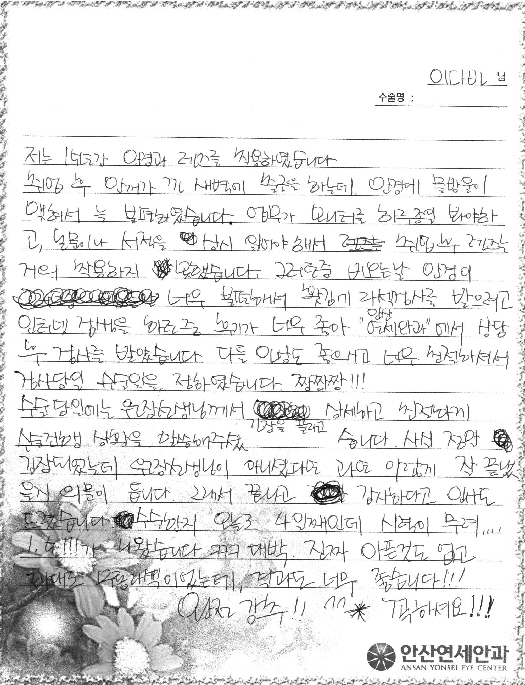 이다빈 님
수술명 :
저는 15년간 안경과 렌즈를 착용하였습니다
취업 후 안개가 낀 새벽에 출근을 하는데, 안경에 물방울이
맺혀서 늘 불편하였습니다. 업무가 모니터를 하루종일 봐야하
고, 논문이나 서적을 상시 읽어야 해서 취업 후 렌즈는
거의 착용하지 못했습니다. 그러던중 비오는날 안경이
너무 불편해서 라섹검사를 받으려고
인터넷 검색을 하던중 후기가 너무 좋아 "안산연세안과"에서 상담
후 검사를 받았습니다. 다들 인상도 좋으시고 너무 친절하셔서
검사당일 수술일을 정하였습니다 짱짱짱!!!
수술당일에는 원장선생님께서 긴장을 풀라고 상세하고 친절하게
수술진행 상황을 말씀해주셨습니다. 사실 정말
긴장되었는데 원장선생님이 아니셨다면 과연 이렇게 잘 끝났
을지 의문이 듭니다. 그래서 끝나고 감사하다고 인사도
드렸습니다. 수술까지 오늘로 4일째인데 시력이 무려....
1.5!!!가 나왔습니다 대박. 진짜 아픈것도 없고
결과도 너무 좋습니다!!!
완전 강추!! ^^ * 꼭하세요!!!
안산연세안과
ANSAN YONSEI EYE CENTER